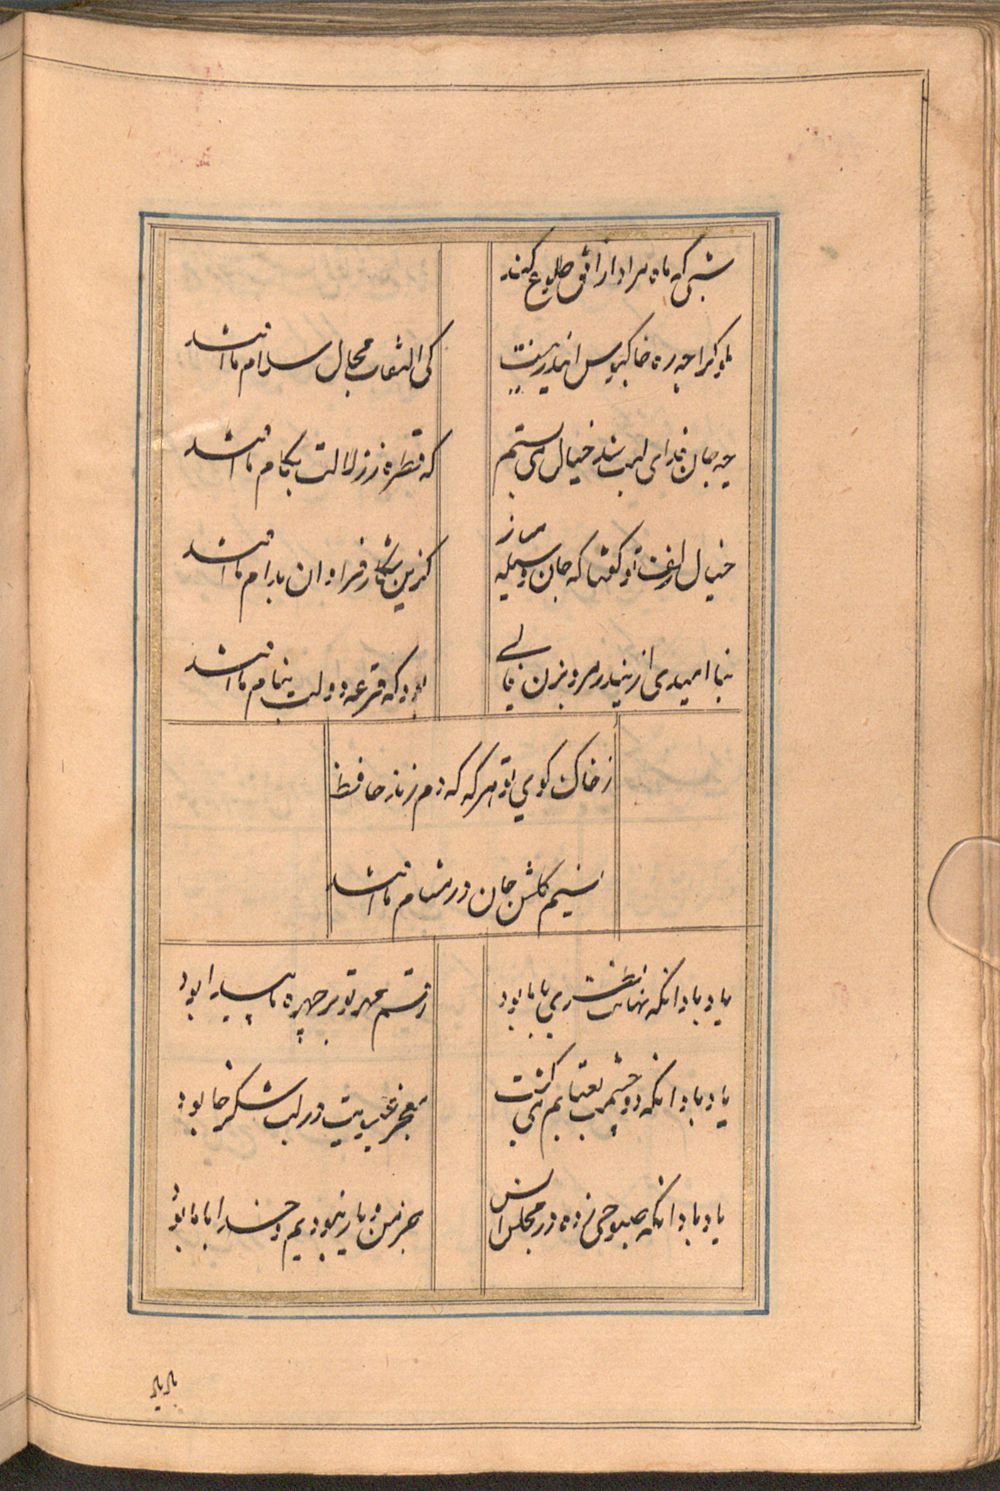 شبی که ماه مراد از افق طلوع کند
ملوک را چو ره خاکبوس این در نیست
کی التفات مجال سلام ما افتد
چو جان فدای لبت شد خیال می بستم
که قطره ز زلالت بکام ما افتد
خیال زلف تو گفتا که جان وسیله مساز
کزین شکار فراوان بدام ما افتد
بنا امیدی ازین در مرو بزن فالی
بود که قرعه دولت بنام ما افتد
ز خاک کوی تو هر که که دم زند حافظ
نسیم گلشن جان در مشام ما افتد
یاد باد انکه نهانت نظری با ما بود
رقم مهر تو بر چهره ما پیدا بود
یاد باد انکه دو چشمت بعتابم می کشت
معجز عیسویت در لب شکر خا بود
یاد باد انکه صبوحی زده در مجلس انس
جز من و یار نبودیم و خدا با ما بود